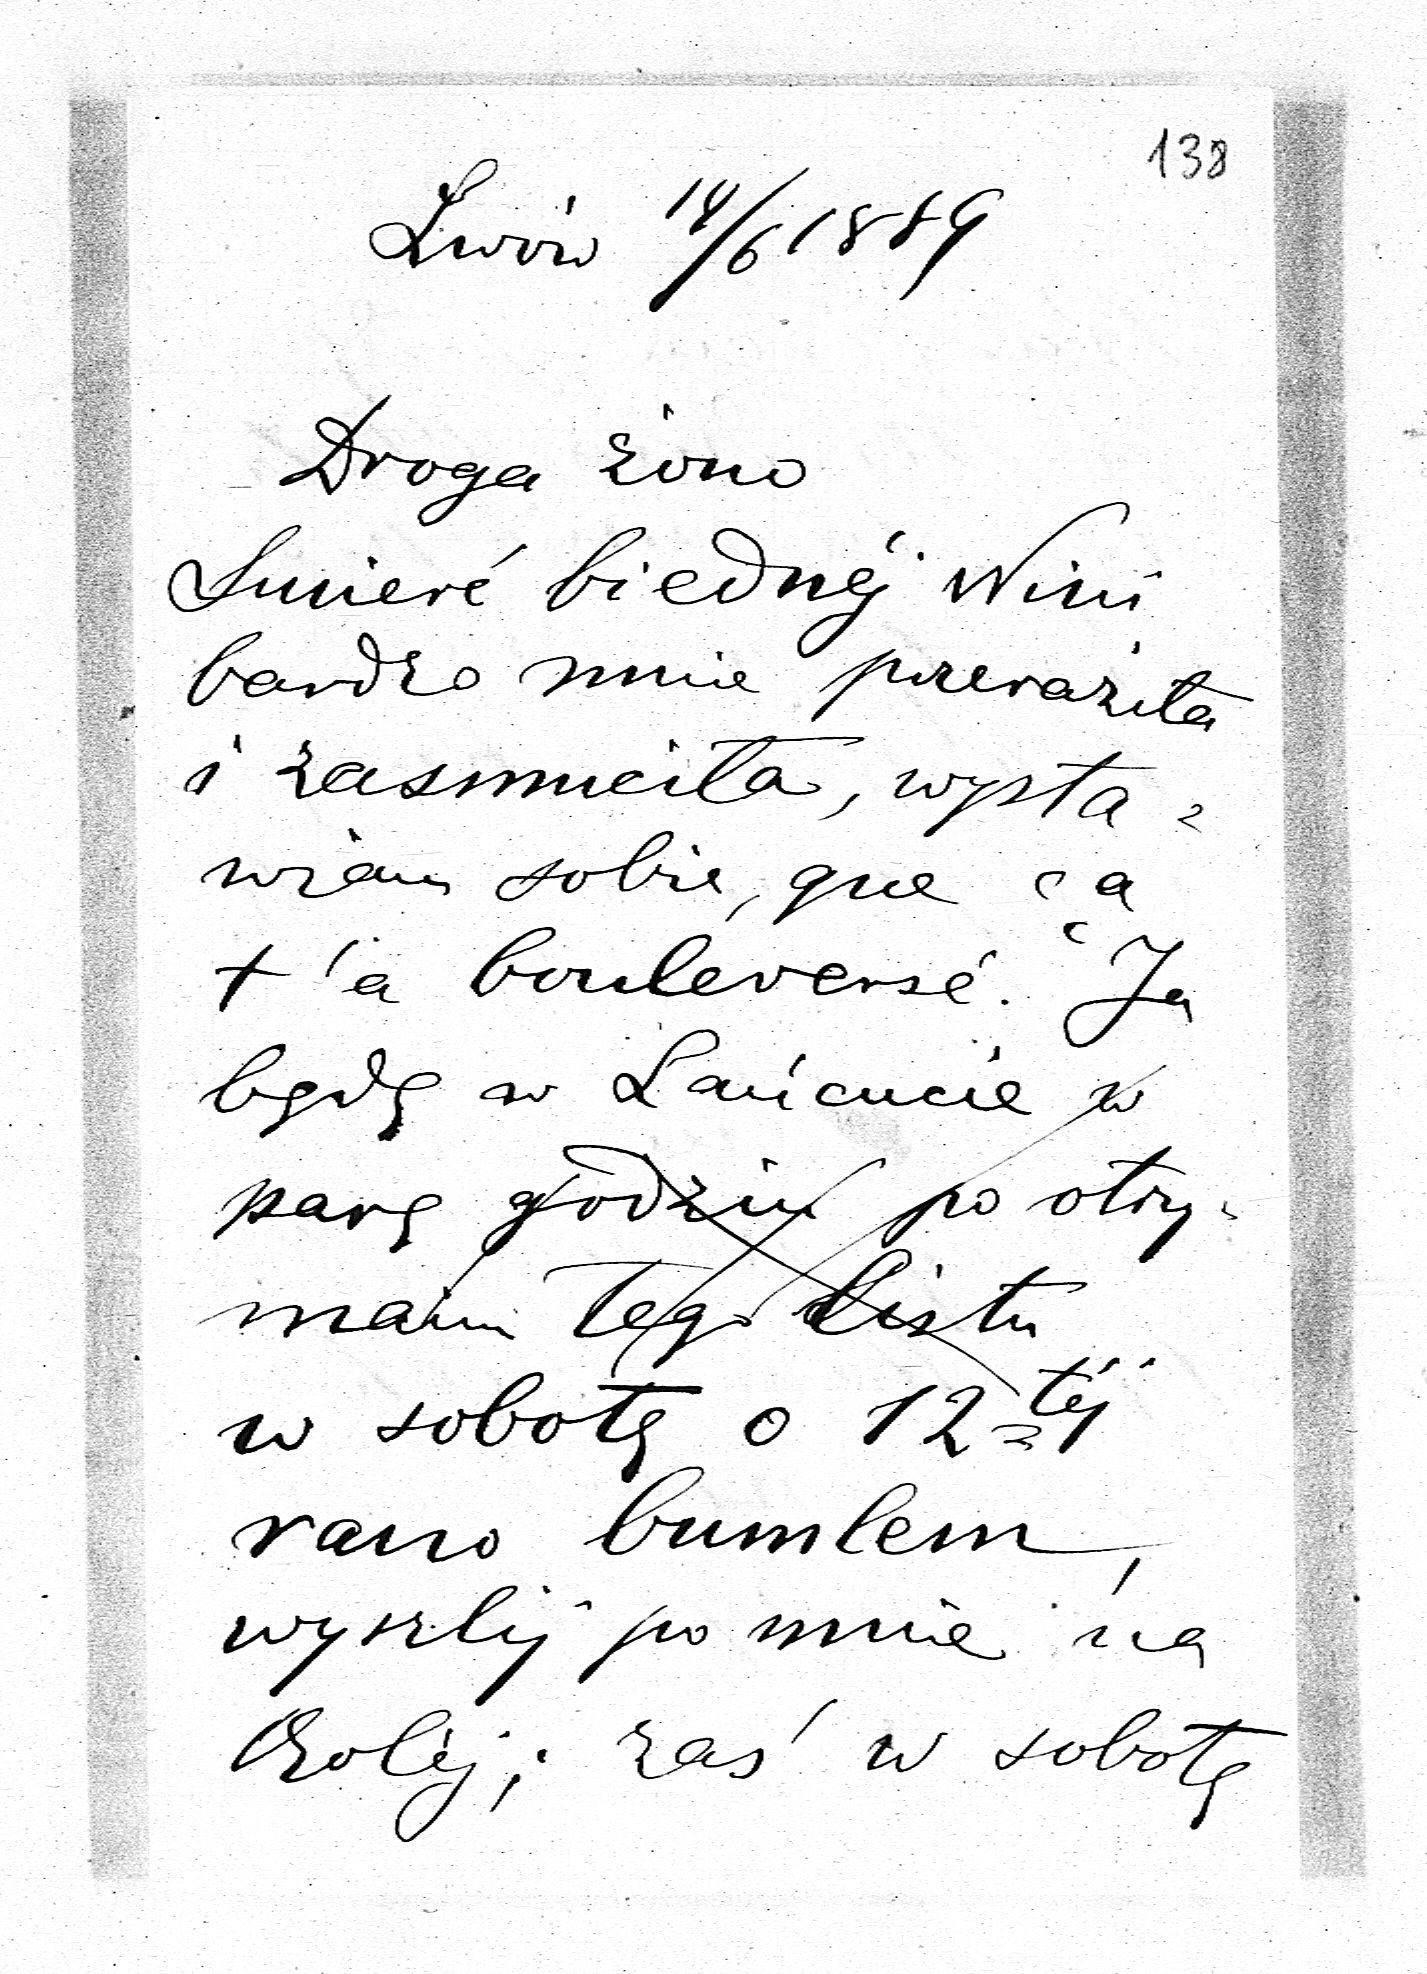 138
Lwów 14/6 1889
Droga żono
Smierć biednéj Wini
bardzo mnie przeraziła
i zasmuciła, wysta=
wiam sobie, que ça
t'a bouleversé. Ja
będę w Łańcucie w
parę godzin po otrzy-
maniu tego listu
w sobotę o 12téj
rano bumlem,
wyszlij po mnie na
kolėj; zaś w sobotę